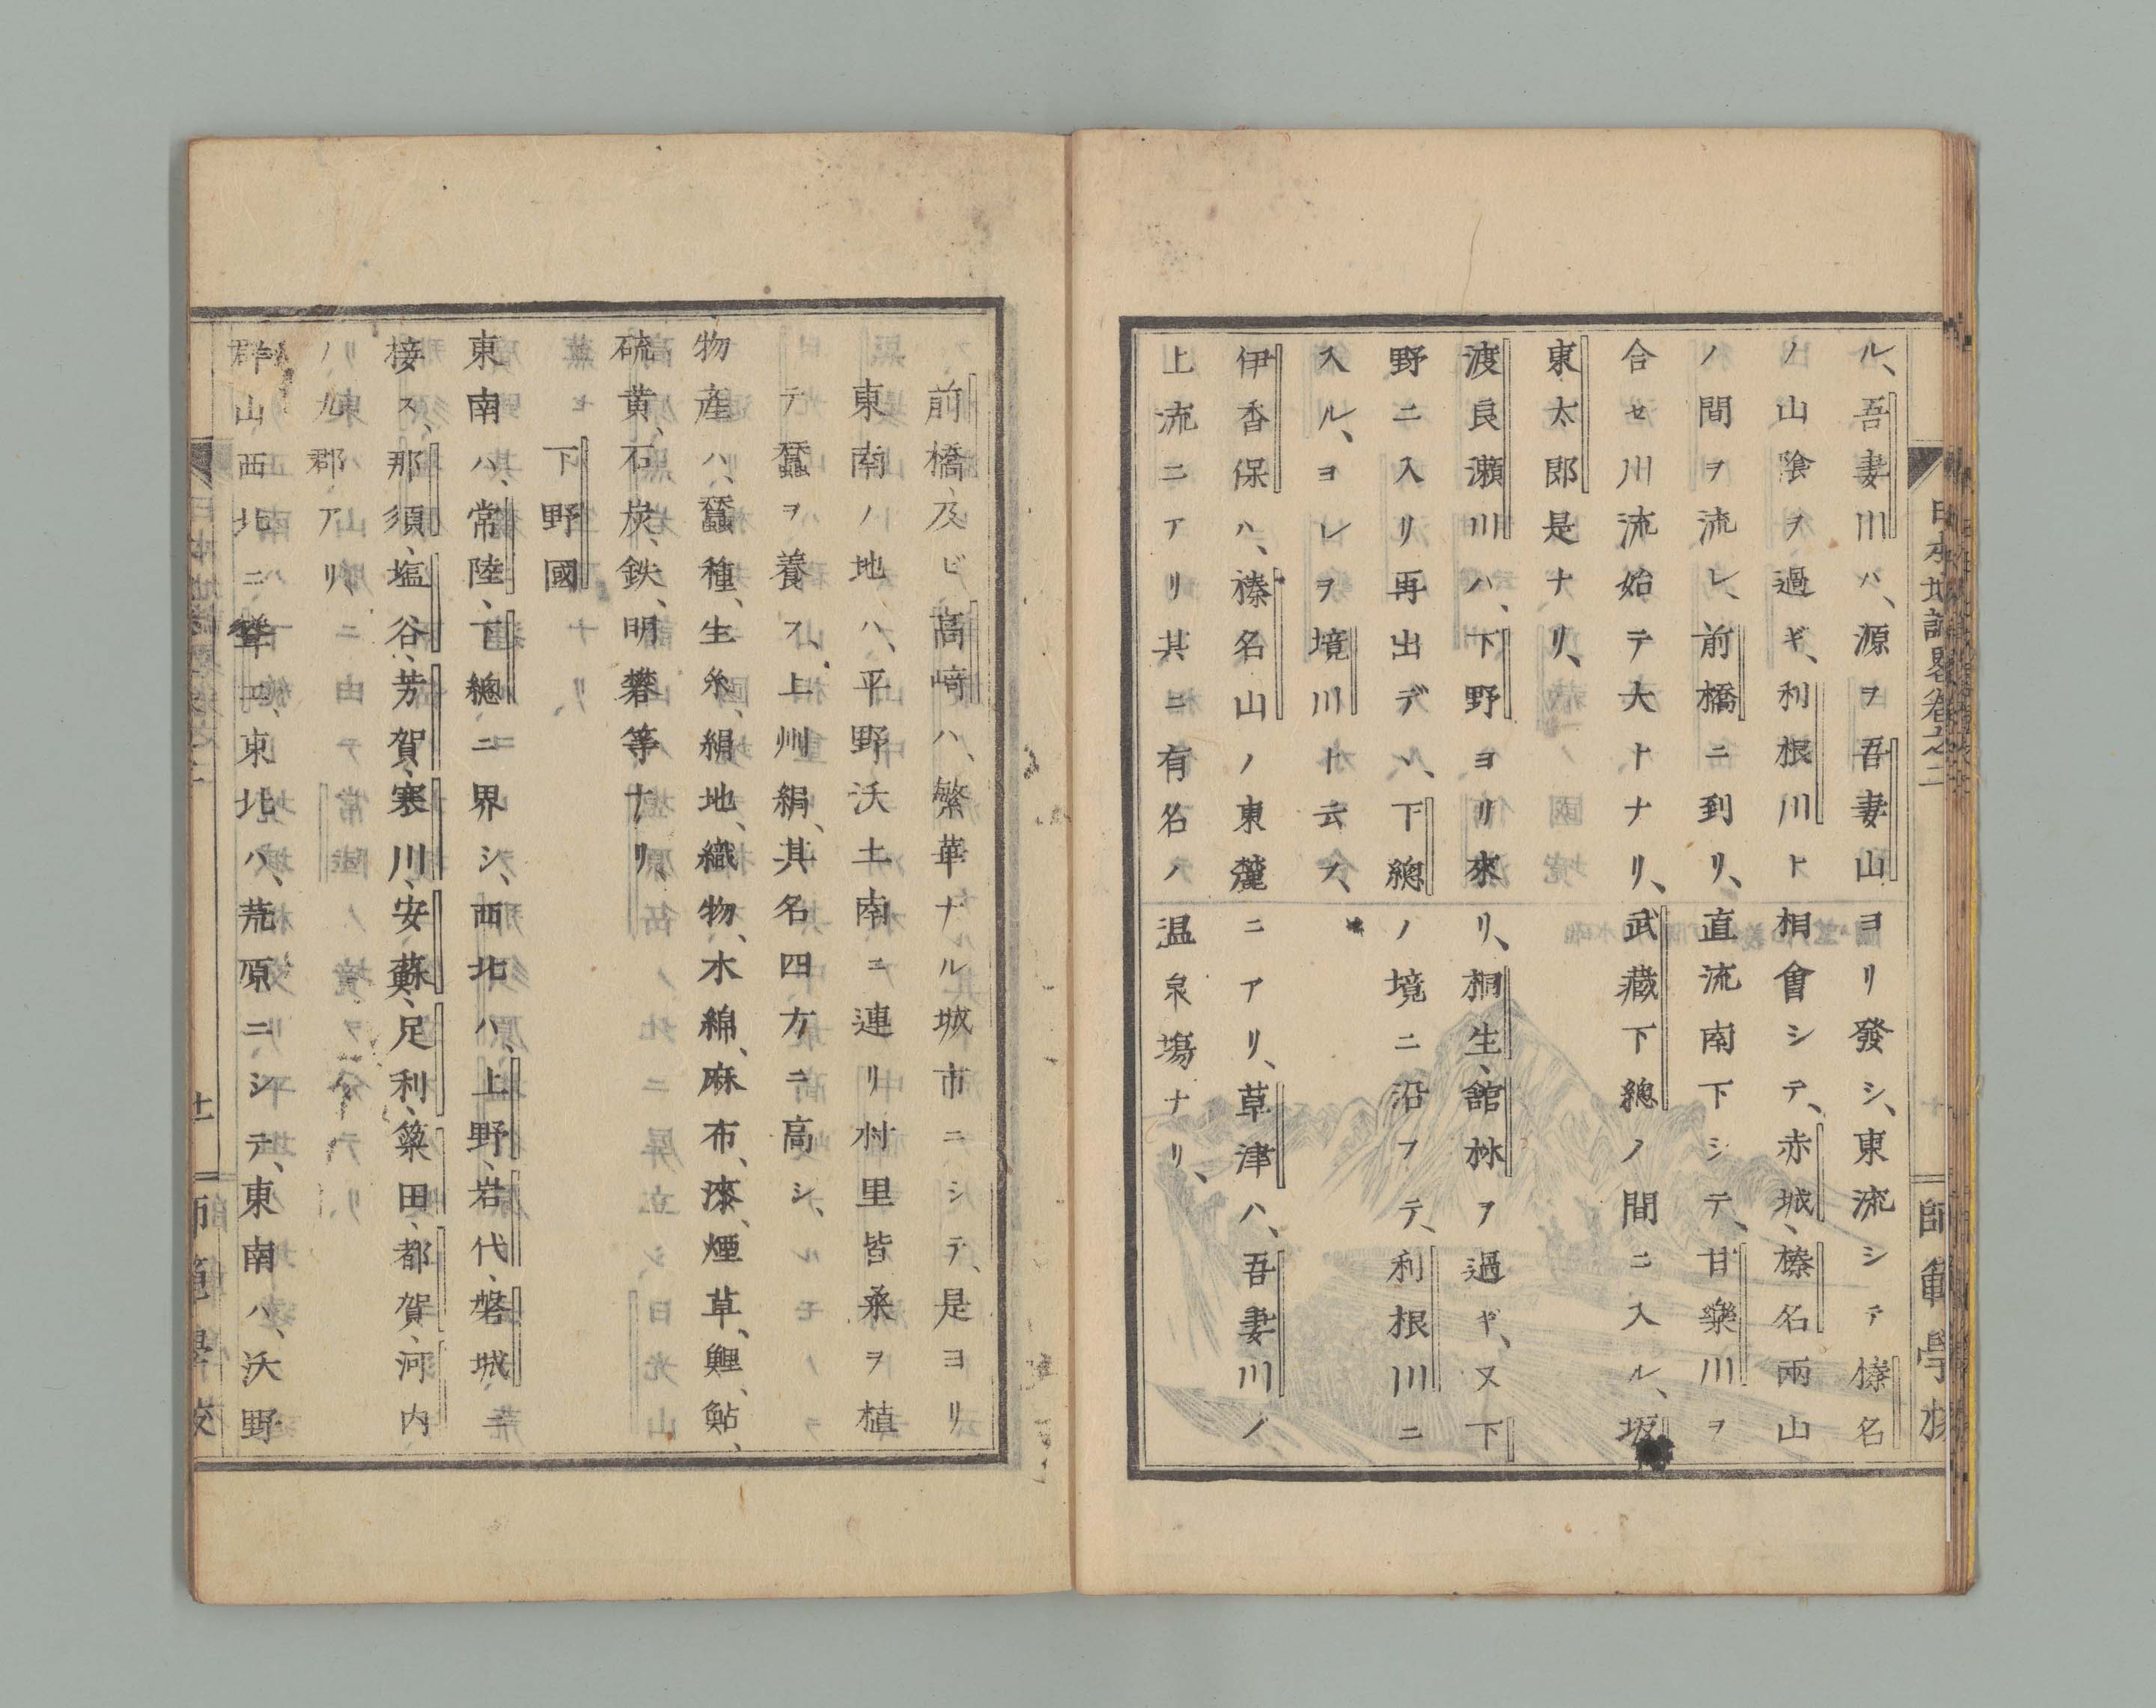 日本地誌畧卷之二
師範學校
ル、吾妻川ハ、源ヲ吾妻山ヨリ發シ、東流シテ榛名
ノ山陰ヲ過ギ、利根川ト相會シテ、赤城、榛名兩山
ノ間ヲ流レ、前橋ニ到リ、直流南下シテ、甘樂川ヲ
合セ川流始テ大トナリ、武藏下總ノ間ニ入ル、坂
東太郎是ナリ、
渡良瀬川ハ、下野ヨリ來リ、桐生、舘林ヲ過ギ、又下
野ニ入リ再出デ、下總ノ境ニ沿フテ、利根川ニ
入ル、コレヲ境川ト云フ、
伊香保ハ、榛名山ノ東麓ニアリ、草津ハ、吾妻川ノ
上流ニアリ其ニ有名ノ温泉塲ナリ、
前橋及ビ、高﨑ハ、繁華ナル城市ニシテ、是ヨリ
東南ノ地ハ、平野沃土南ニ連リ村里皆桑ヲ植
テ蠶ヲ養フ、上州絹、其名四方ニ高シ、
物産ハ、蠶種、生糸、絹地、織物、木綿、麻布、漆、煙草、鯉、鮎、
硫黄、石炭、鉄、明礬等ナリ、
下野國
東南ハ、常陸、下總ニ界シ、西北ハ、上野、岩代、磐城、ニ
接ス、那須、塩谷、芳賀、寒川、安蘇、足利、簗田、都賀、河内
ノ九郡アリ、
群山西北ニ聳エ、東北ハ、荒原ニシテ、東南ハ、沃野
十一
師範學校